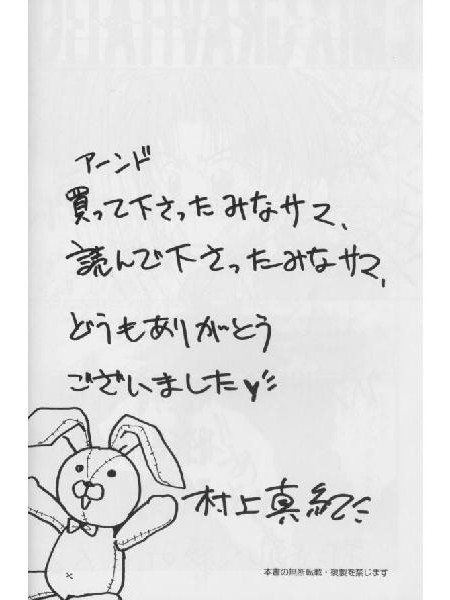 アーンド
買って下さったみなサマ、
読んで下さったみなサマ、
どうもありがとう
ございました
村上真紀
本書の無断転載・複製を禁じます